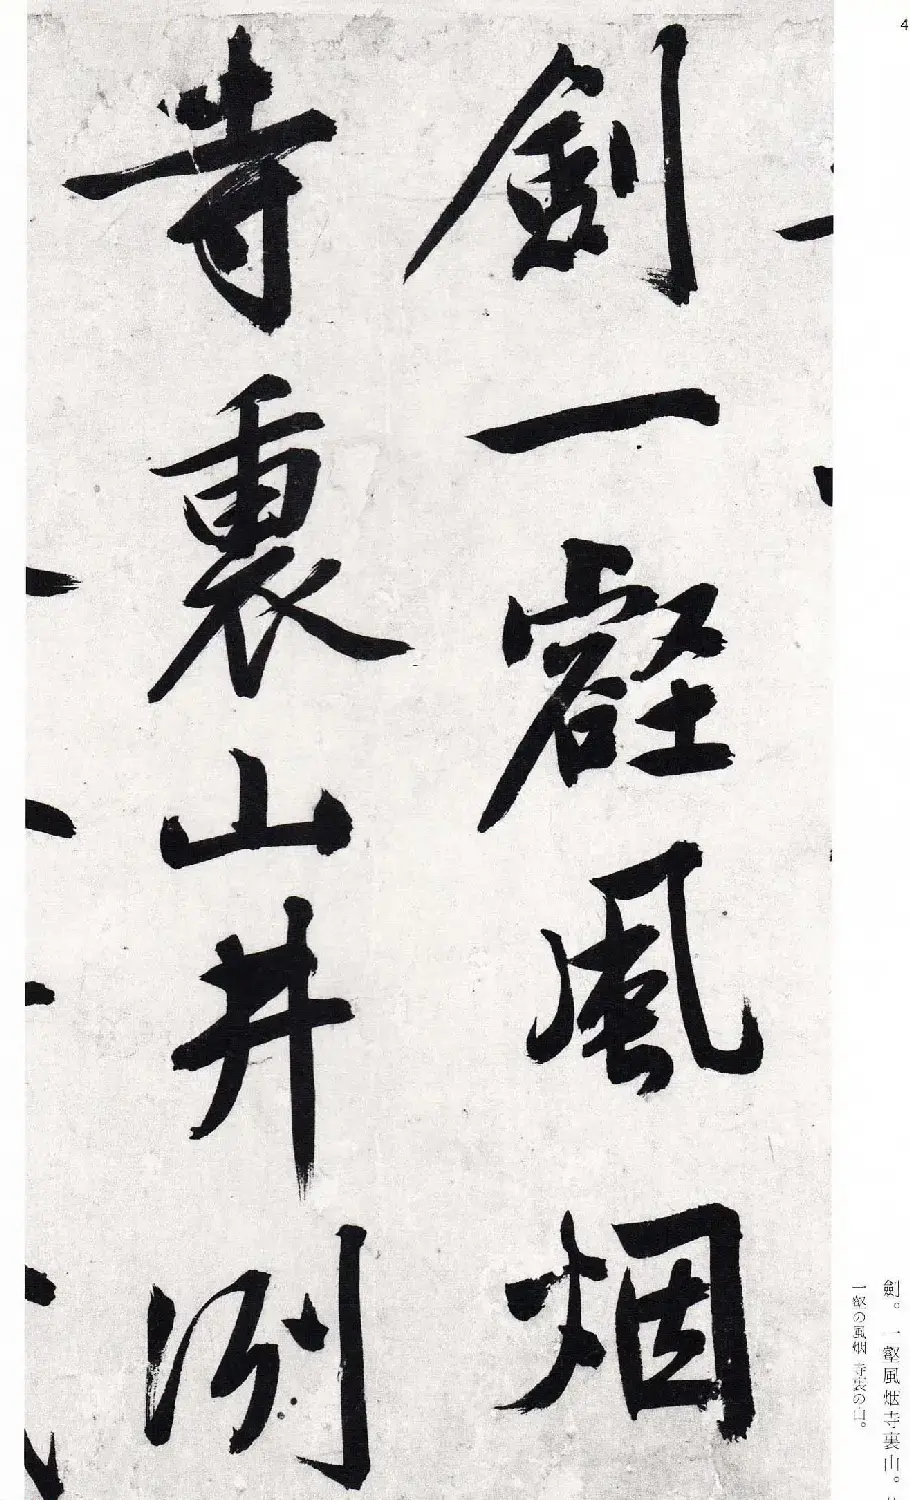 4
劍。一壑風烟寺裏山。
一壑の風烟 寺裏の山。
劍一壑風烟
寺裏山井冽